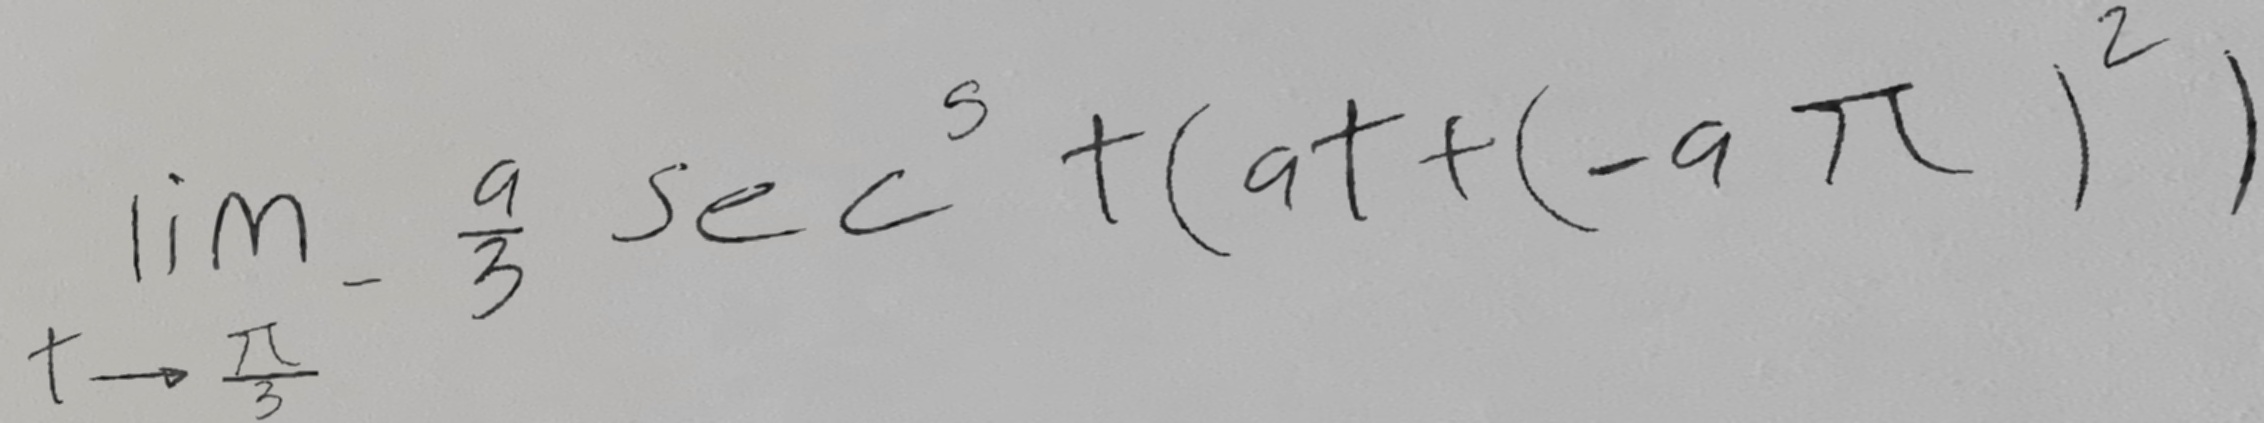 \lim_{t \to \frac{\pi}{3}} - \frac{a}{3} \sec^5 t (at + (-a\pi)^2)